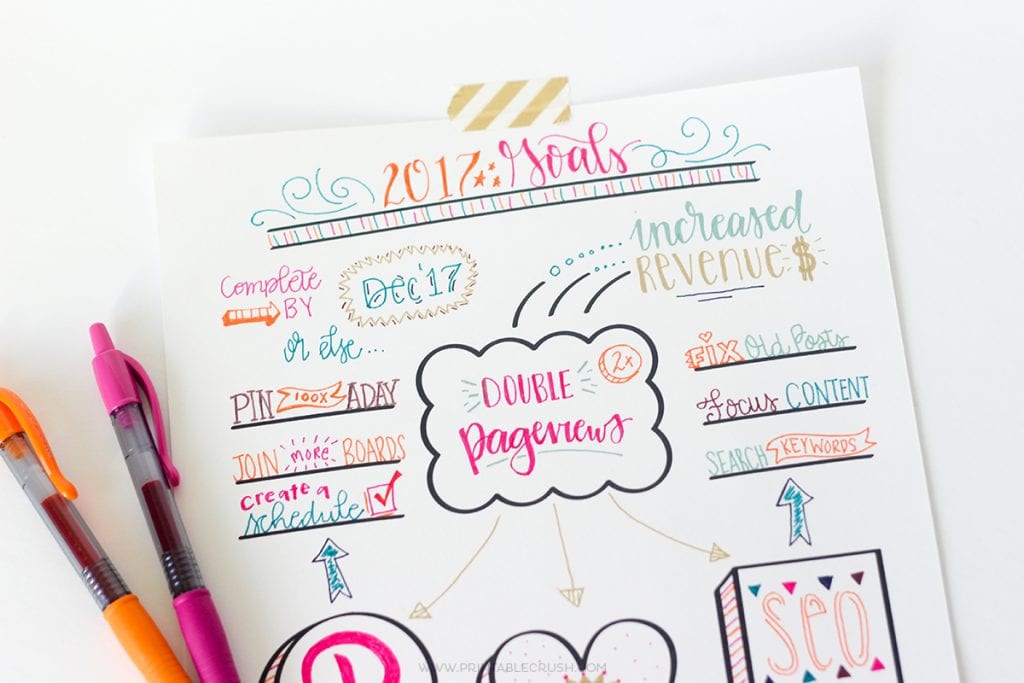 2017 Goals
increased
REVENUE $
Complete
BY
Dec '17
or else...
PIN 100X A DAY
JOIN more BOARDS
create a
schedule
2x
DOUBLE
pageviews
FIX Old Posts
Focus CONTENT
SEARCH KEYWORDS
SEO
WWW.PRINTABLECRUSH.COM